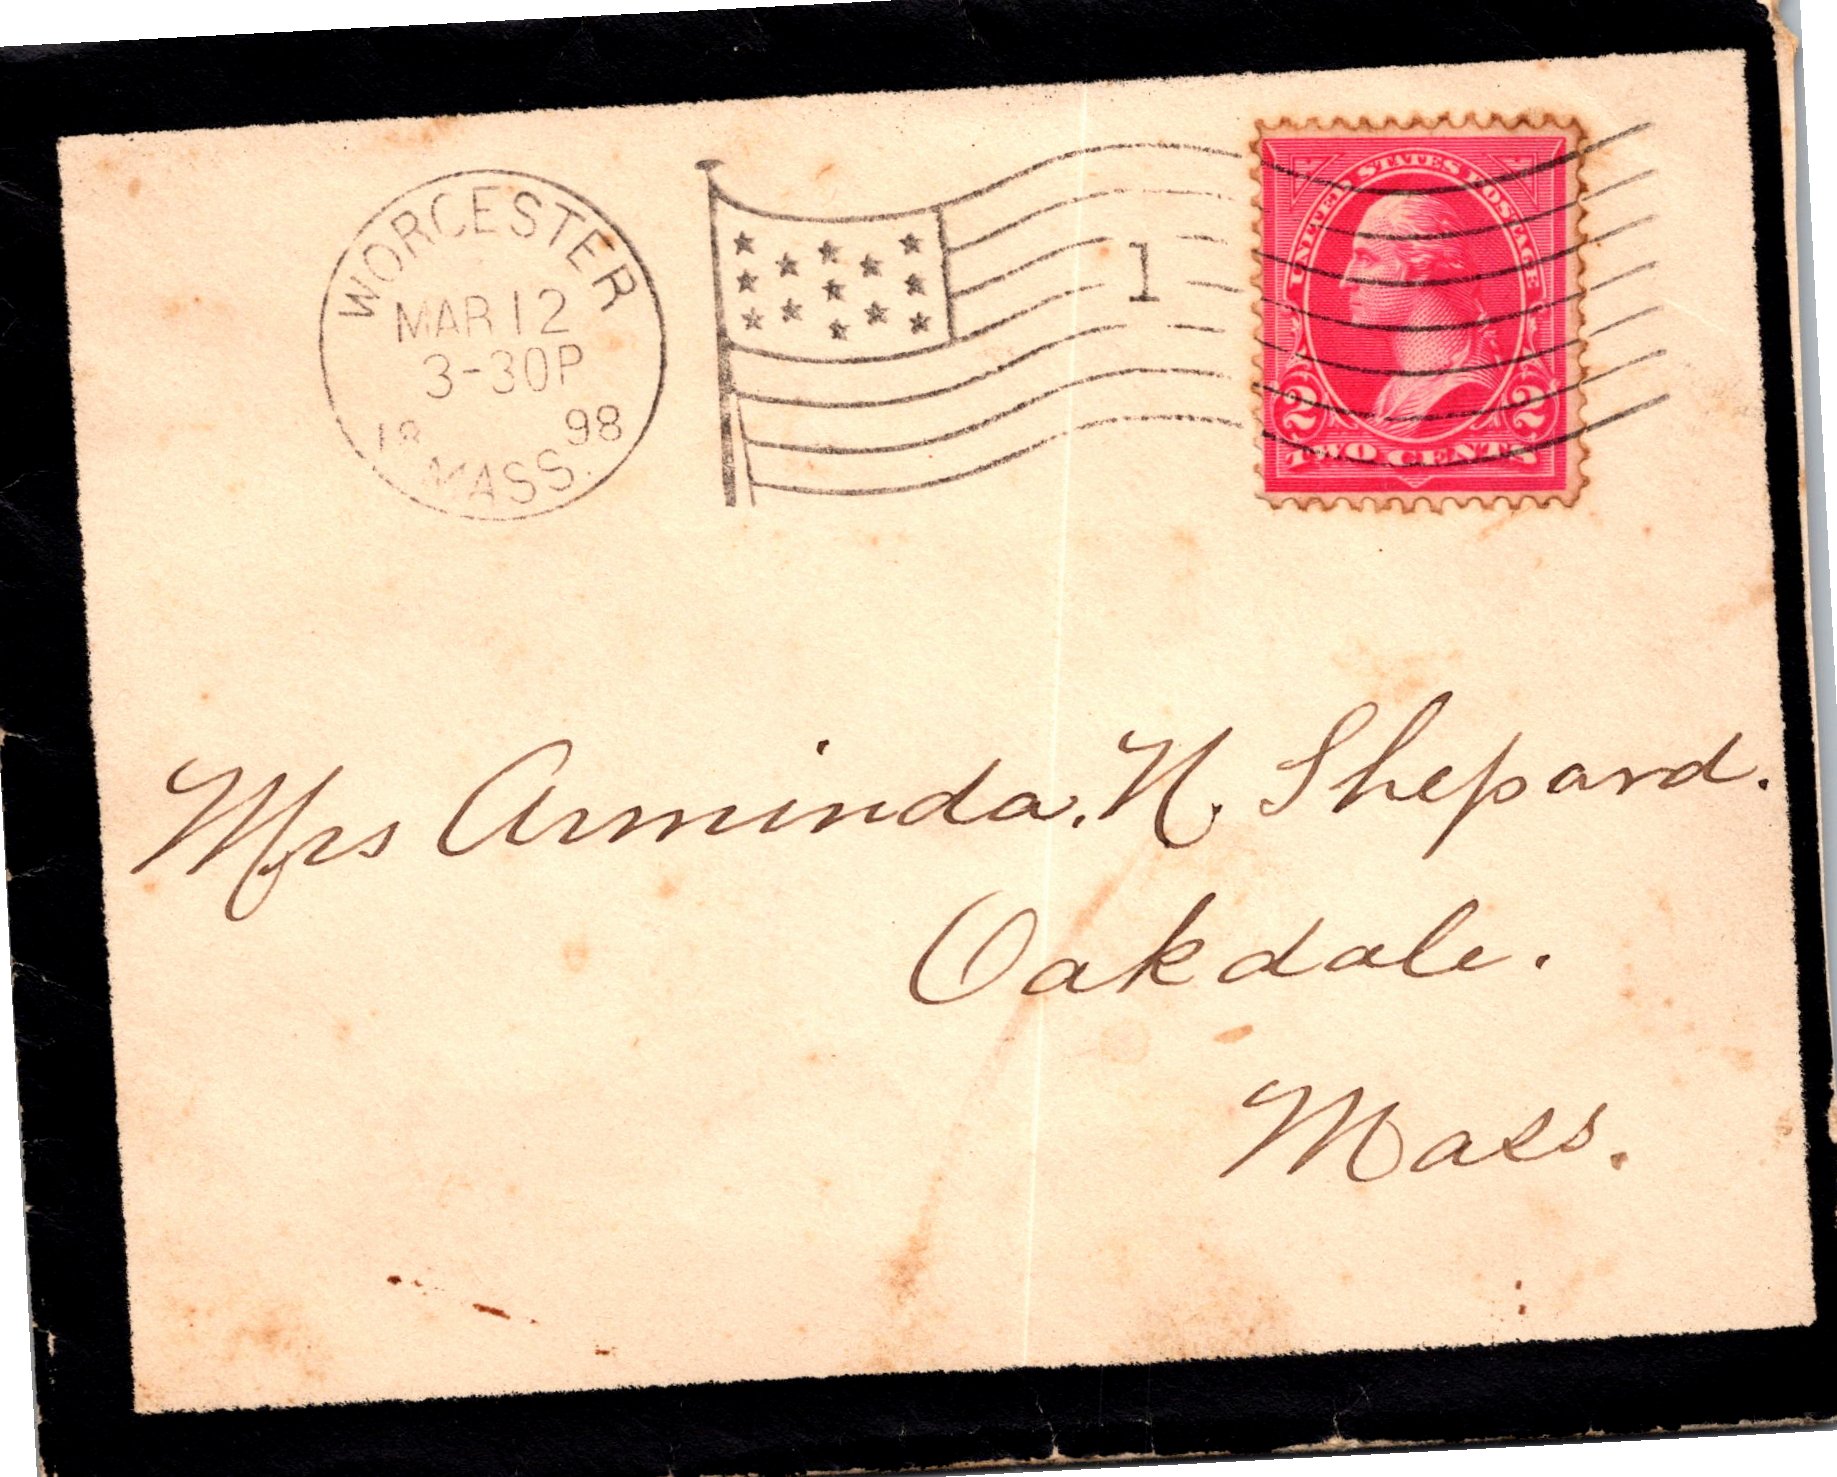 WORCESTER
MAR 12
3-30P
18 98
MASS.
1
UNITED STATES POSTAGE
2 2
TWO CENTS
Mrs Arminda. N. Shepard.
Oakdale.
Mass.